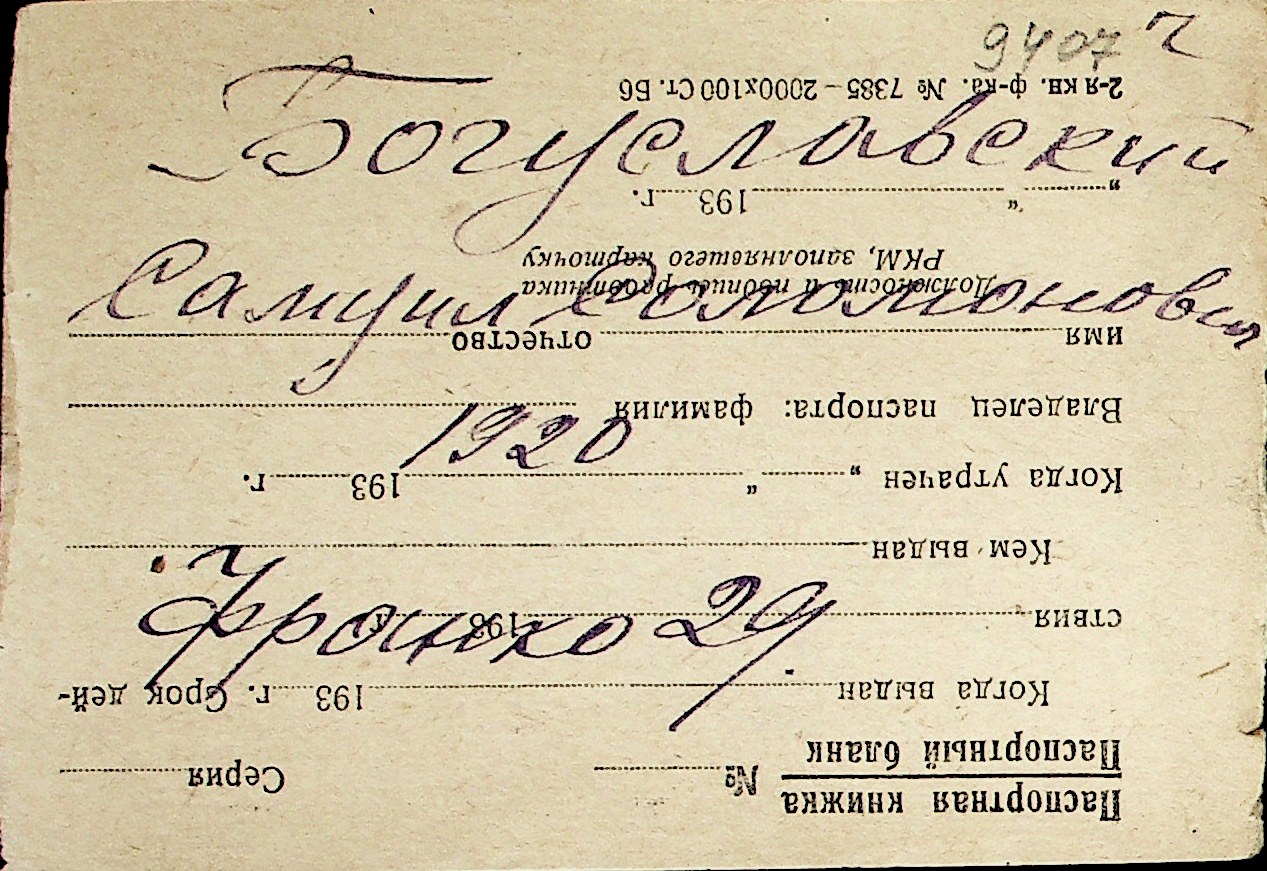 9407 ч
Богуславский
Самуил Соломонович
1920
Франко 29
Паспортная книжка
Паспортный бланк
№ Серия
Когда выдан 193 г. Срок дей-
ствия 193 г.
Кем выдан
Когда утрачен „ “ 193 г.
Владелец паспорта: фамилия
имя отчество
Должность и подпись работника
РКМ, заполнявшего карточку
„ “ 193 г.
2-я кн. ф-ка. № 7385 – 2000x100 Ст. Б6